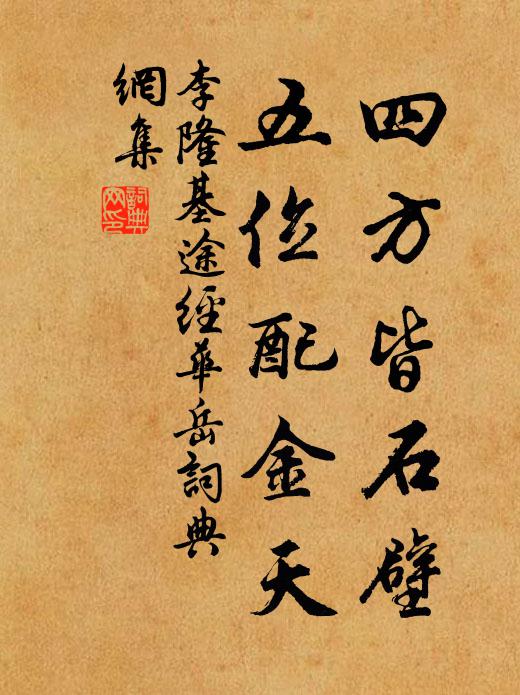 四方皆石壁
五位配金天
李隆基途經華岳詞典
網集
詞典
网印